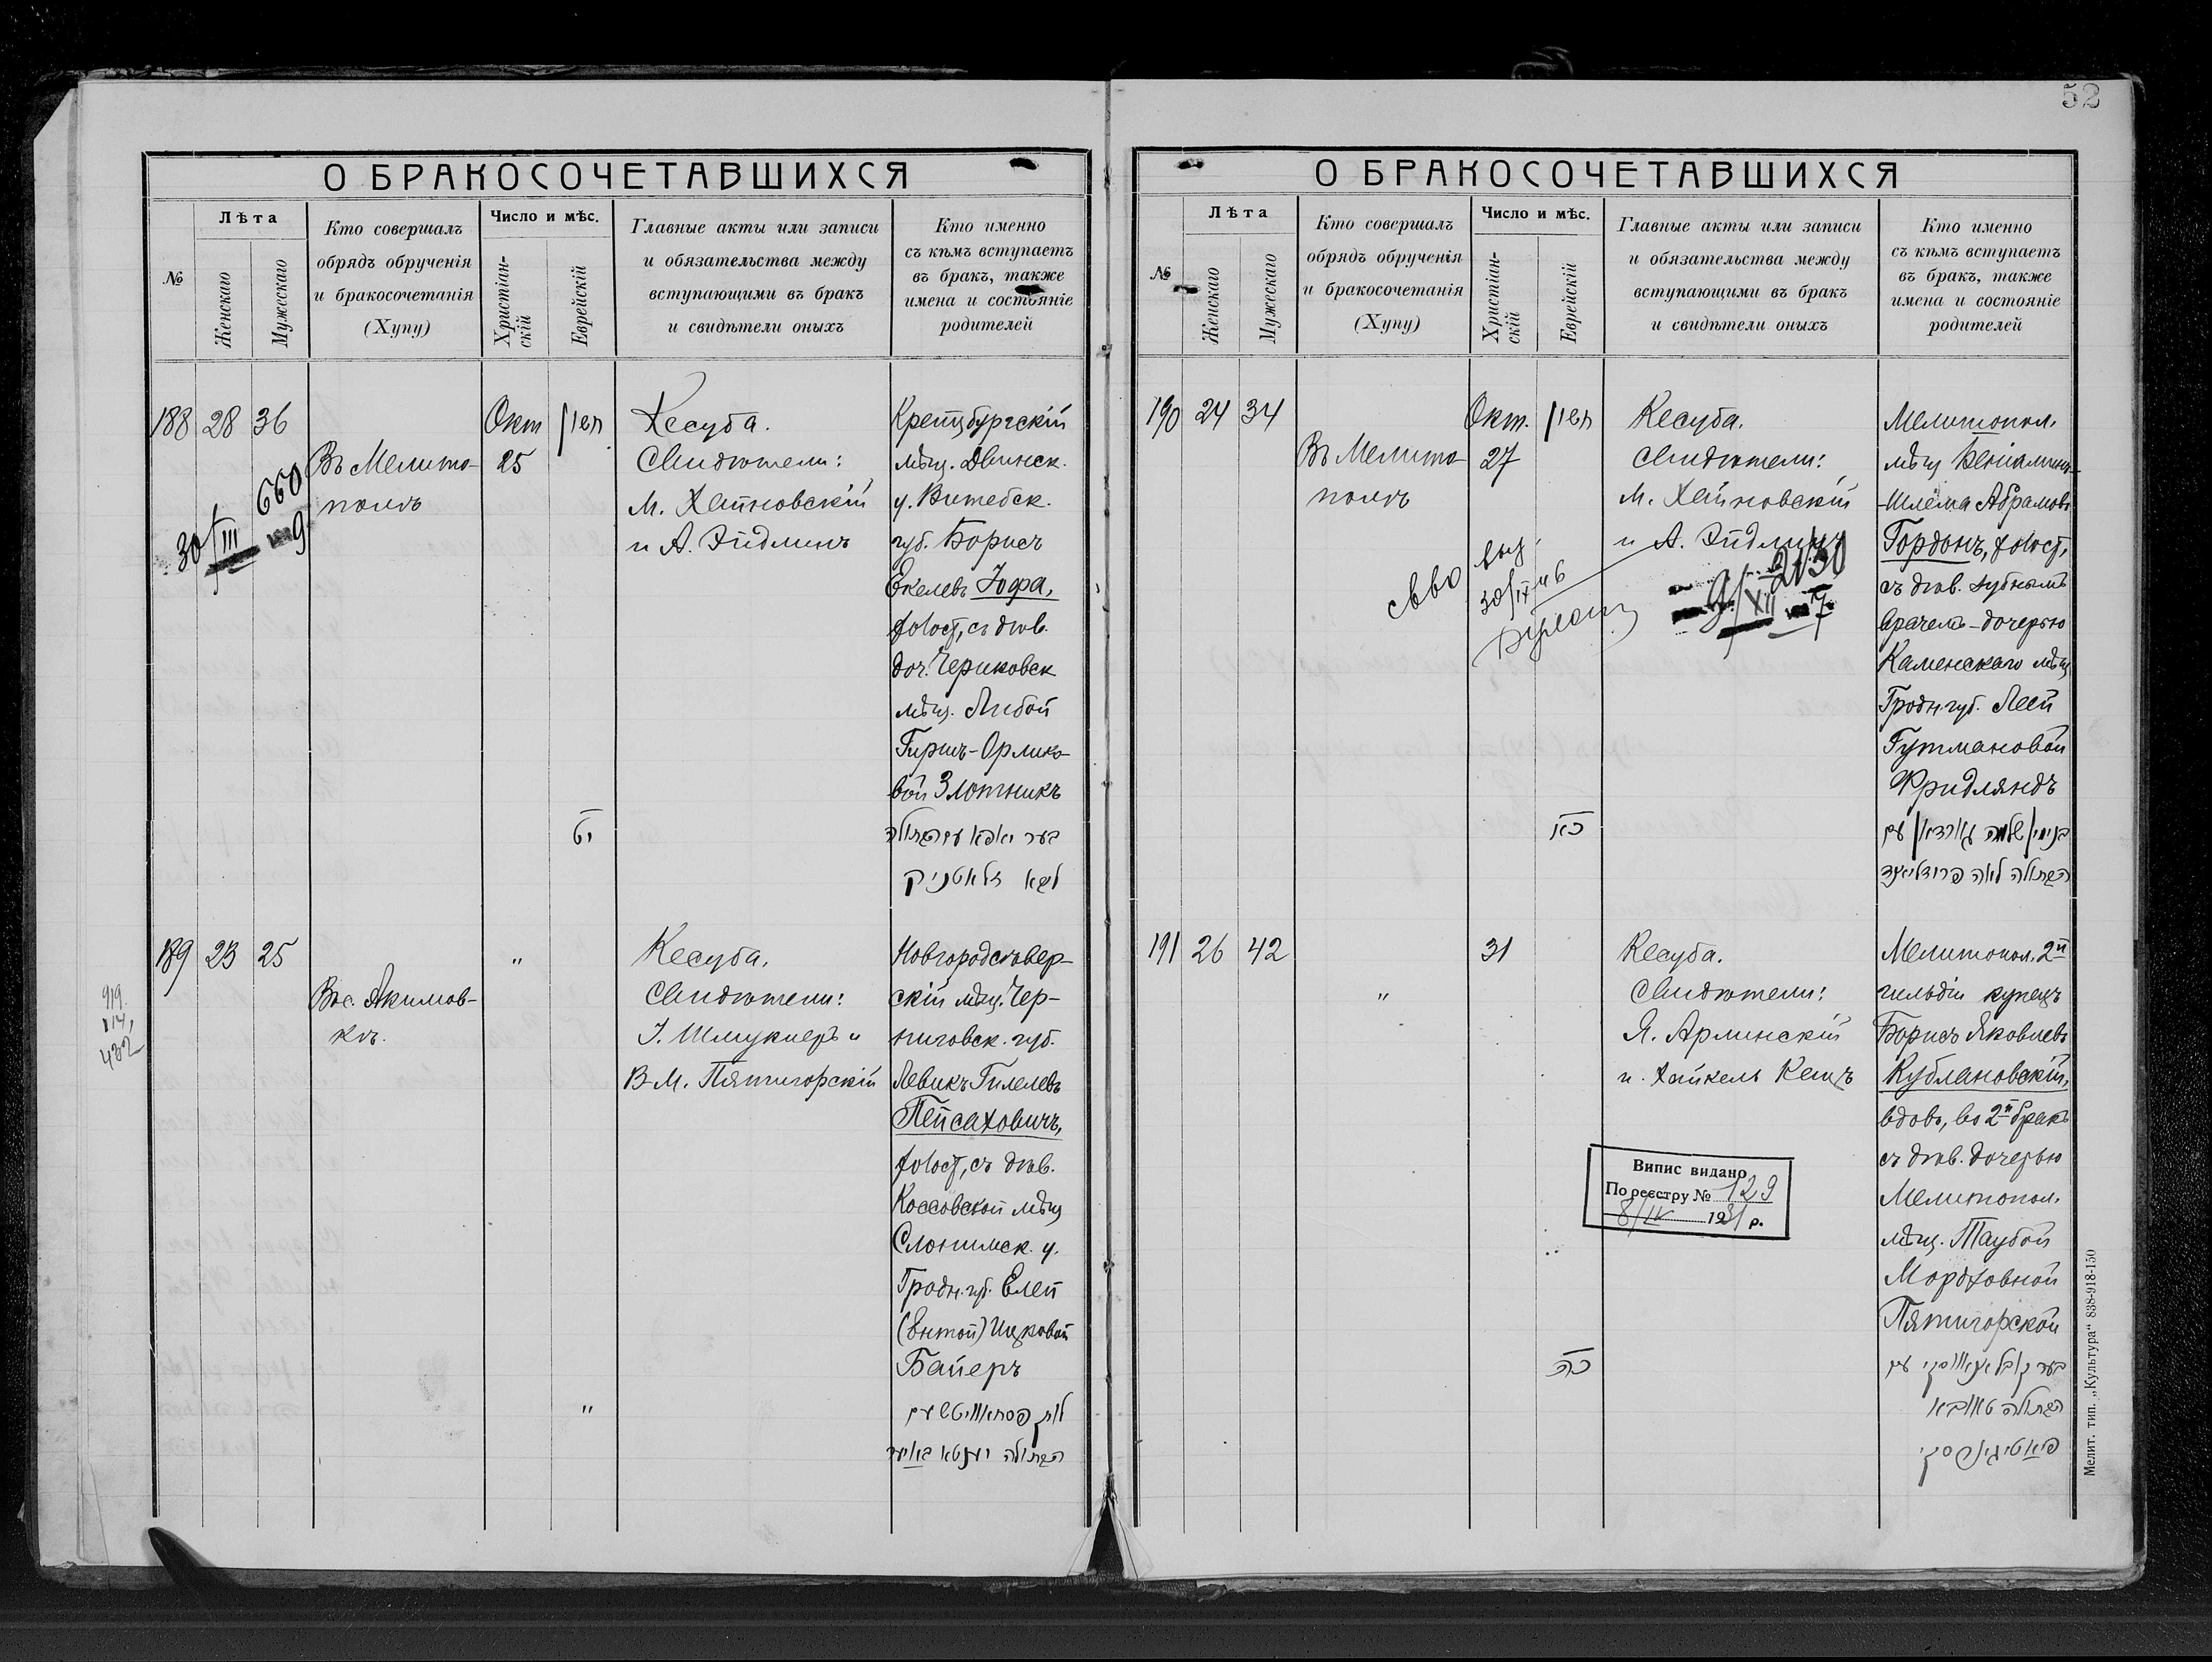 О БРАКОСОЧЕТАВШИХСЯ
№
Лѣта
Женскаго
Мужскаго
Кто совершалъ
обрядъ обрученія
и бракосочетанія
(Хупу)
Число и мѣс.
Христіан-
скій
Еврейскій
Главные акты или записи
и обязательства между
вступающими въ бракъ
и свидѣтели оныхъ
Кто именно
съ кѣмъ вступаетъ
въ бракъ, также
имена и состояніе
родителей
188 28 36
Въ Мелито-
полѣ
Окт
25
חשון
יט
660
30/III 9
Кесуба.
Свидѣтели:
М. Хайновскій
и А. Эйдлинъ
Крейцбургскій
мѣщ. Двинск.
у. Витебск.
губ. Борисъ
Екелевъ Іофа,
холост, съ дѣв.
доч. Чериковск
мѣщ. Либой
Гирш-Орлико-
вой Злотникъ
בער יאפא עם הבתולה
ליבא זלאטניק
189 23 25
Въ с. Акимов-
кѣ.
"
"
Кесуба.
Свидѣтели:
І. Шмуклеръ и
В-М. Пятигорскій
Новгородсѣвер-
скій мѣщ. Чер-
ниговск. губ.
Левикъ Гилелевъ
Пейсаховичъ,
холост, съ дѣв.
Коссовской мѣщ
Слонимск. у.
Гродн. губ. Елей
(Ентой) Ицковой
Байеръ
הבתולה יענטא באיער
919.
114,
432
52
О БРАКОСОЧЕТАВШИХСЯ
№
Лѣта
Женскаго
Мужескаго
Кто совершалъ
обрядъ обрученія
и бракосочетанія
(Хупу)
Число и мѣс.
Христіан-
скій
Еврейскій
Главные акты или записи
и обязательства между
вступающими въ бракъ
и свидѣтели оныхъ
Кто именно
съ кѣмъ вступаетъ
въ бракъ, также
имена и состояніе
родителей
190 24 34
Въ Мелито-
полѣ
Окт.
27
חשון
כא
Кесуба.
Свидѣтели:
М. Хайновскій
и А. Эйдлинъ
2130
9/XII 17
30/IX 46
Мелитопол.
мѣщ Веніаминъ-
-Шлема Абрамовъ
Гордонъ, холост,
съ дѣв. зубнымъ
врачемъ-дочерью
Каменскаго мѣщ
Гродн. губ. Леей
Гутмановой
Фридляндъ
בנימין שלמה גארדאן עם
הבתולה לאה פרידליאנד
191 26 42
"
31
כה
Кесуба.
Свидѣтели:
Я. Арлинскій
и Хайкель Кецъ
Випис видано
По реєстру № 129
8/IV 1931 р.
Мелитопол. 2й
гильдіи купецъ
Борисъ Яковлевъ
Кублановскій,
вдовъ, во 2й бракъ
съ дѣв. дочерью
Мелитопол.
мѣщ. Таубой
Мордховной
Пятигорской
בער קובליאנאווסקי עם
הבתולה טאובא
פיאטיגארסקי
Мелит. тип. „Культура“ 838-918-150